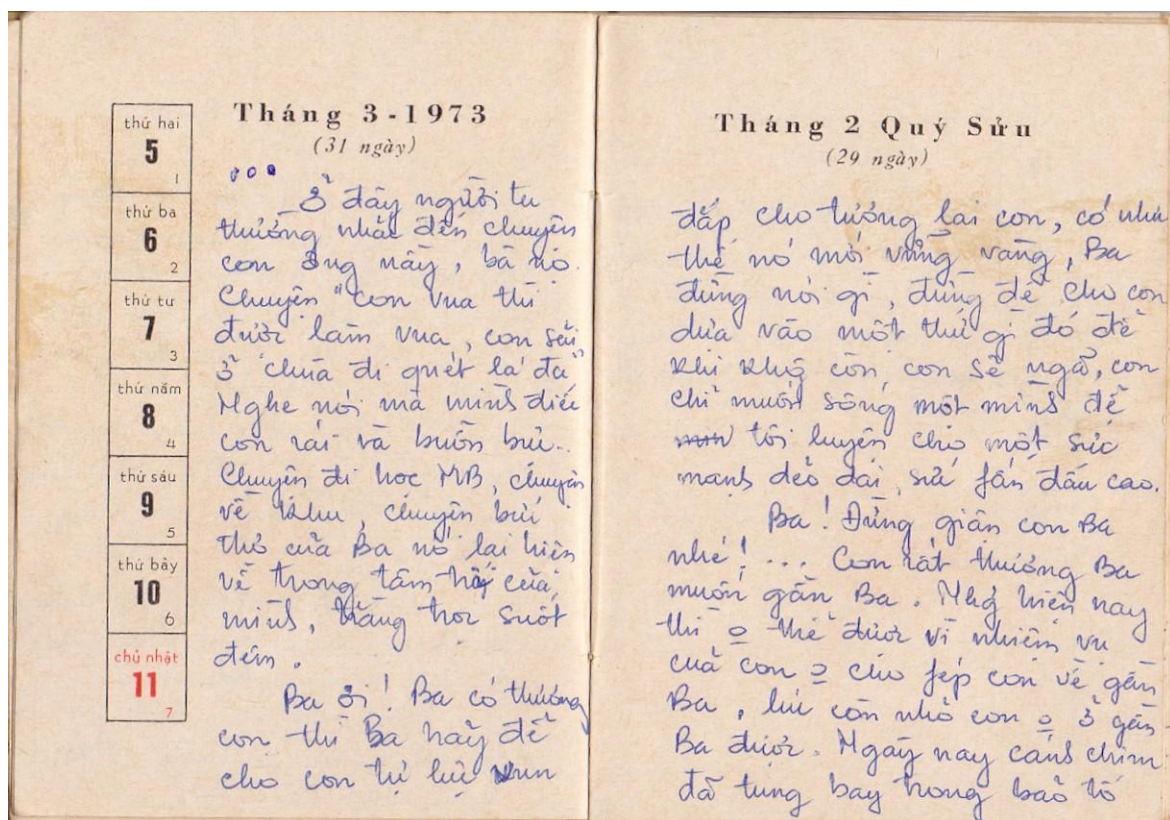 Tháng 3 - 1973
(31 ngày)
thứ hai
5
1
thứ ba
6
2
thứ tư
7
3
thứ năm
8
4
thứ sáu
9
5
thứ bảy
10
6
chủ nhật
11
7
ooo
_Ở đây người ta
thường nhắc đến chuyện
con ông này, bà nọ.
Chuyện "con vua thì
được làm vua, con sãi
ở chùa đi quét lá đa"
Nghe nói mà mình điếc
con rái và buồn bực..
Chuyện đi học MB, chuyện
về khu, chuyện bức
thơ của Ba nó lại hiện
về trong tâm trí của
mình, trằng trọc suốt
đêm.
Ba ơi! Ba có thương
con thì Ba hãy để
cho con tự lực vun
Tháng 2 Quý Sửu
(29 ngày)
đắp cho tương lai con, có như
thế nó mới vững vàng, Ba
đừng nói gì, đừng để cho con
dựa vào một thứ gì đó để
khi khg còn, con sẽ ngã, con
chỉ muốn sống một mình để
tôi luyện cho một sức
mạnh dẻo dai, sức fấn đấu cao.
Ba! Đừng giận con Ba
nhé! ... Con rất thương Ba
muốn gần Ba. Nhg hiện nay
thì o thể được vì nhiệm vụ
của con o cho fép con về gần
Ba, lúc còn nhỏ con o ở gần
Ba được. Ngày nay cánh chim
đã tung bay trong bão tố